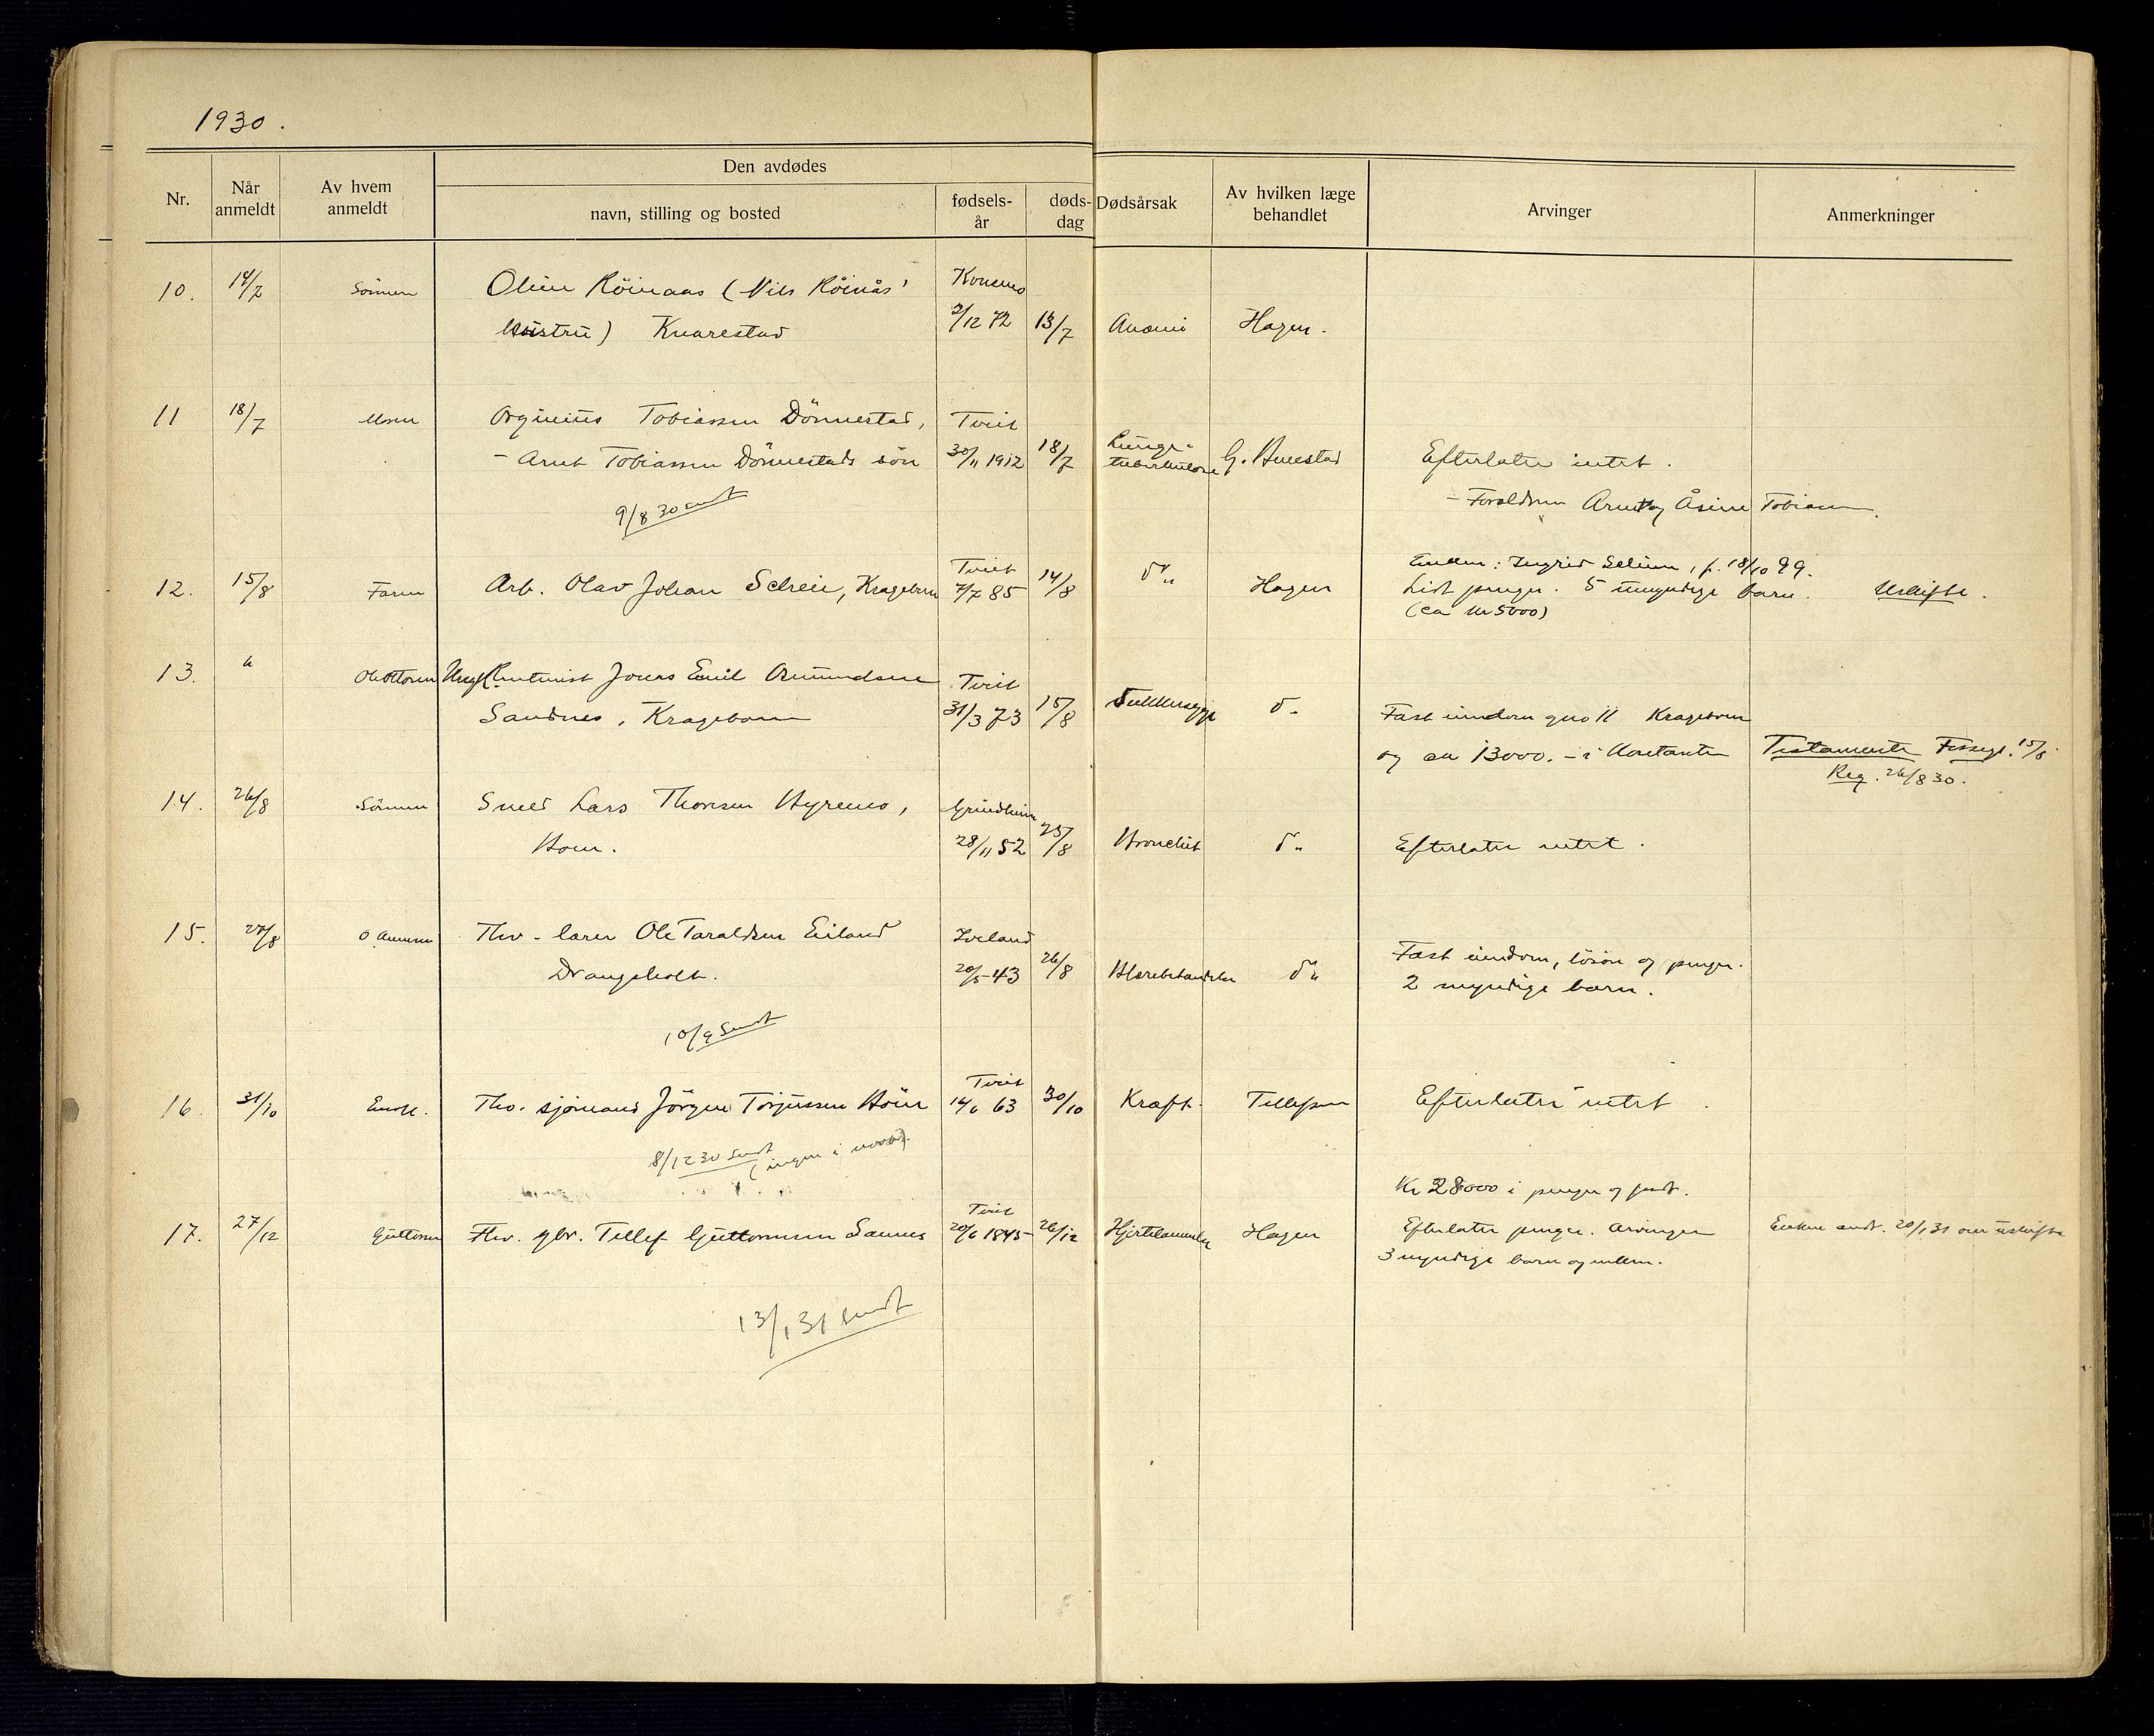 1930.
Den avdødes
Nr.
Når anmeldt
Av hvem anmeldt
navn, stilling og bosted
fødsels-år
døds-dag
Dødsårsak
Av hvilken læge behandlet
Arvinger
Anmerkninger
10. 14/7 Sönnen Oline Röinaas (Nils Röinås'
hustru) Knarestad 2/12 72 13/7 Anæmi Hagen.
11 18/7 Moren Tobiassen Dönnestad, Tveit
- Arnt Tobiassen Dönnestads sön 30/11 1912 18/7 Lunge-tuberkulose G. Efterlater intet.
- Foreldrene Arnt og Åsine Tobiassen.
9/8 30 sendt
12. 15/8 Faren Arb. Olav Johan Schreie, Krageboen Tveit 7/7 85 14/8 do Hagen
Enken: Ingrid Seline, f. 18/10 99.
Litt penger. 5 umyndige barn. Uskifte.
(ca kr 5000)
13. " Ole Ottosen Ungk. Jonas Emil Asmundsen Tveit
Sandnes, Krageboen 31/3 73 15/8 do Fast eiendom gno 11 Krageboen
og ca 13000.- i kontanter Testamente Forsegl. 15/8
Reg. 26/8 30.
14. 26/8 Sönnen Smed Lars Thomsen Hyremo, Grindheim
Hom. 28/11 52 25/8 Bronchit do Efterlater intet.
15. 27/8 Fhv. lærer Ole Taraldsen Eiland Iveland
Drangsholt. 20/5 43 26/8 do Fast eiendom, lösöre og penger.
2 myndige barn.
10/9 sendt
16. 31/10 Enok. Fhv. sjömand Jörgen Torjussen Höie Tveit 14/6 63 30/10 Kræft. Tellefsen Efterlater intet.
8/12 30 sendt (ingen i novbr).
Kr 28000 i penger og jord.
17. 27/12 Guttorm Fhv. gbr. Tellef Guttormsen Sannes Tveit 20/6 1845 26/12 Hjertelammelse Hagen Efterlater penger. Arvinger Enken andr. 20/1 31 om uskifte
3 myndige barn og enken.
13/1 31 sendt